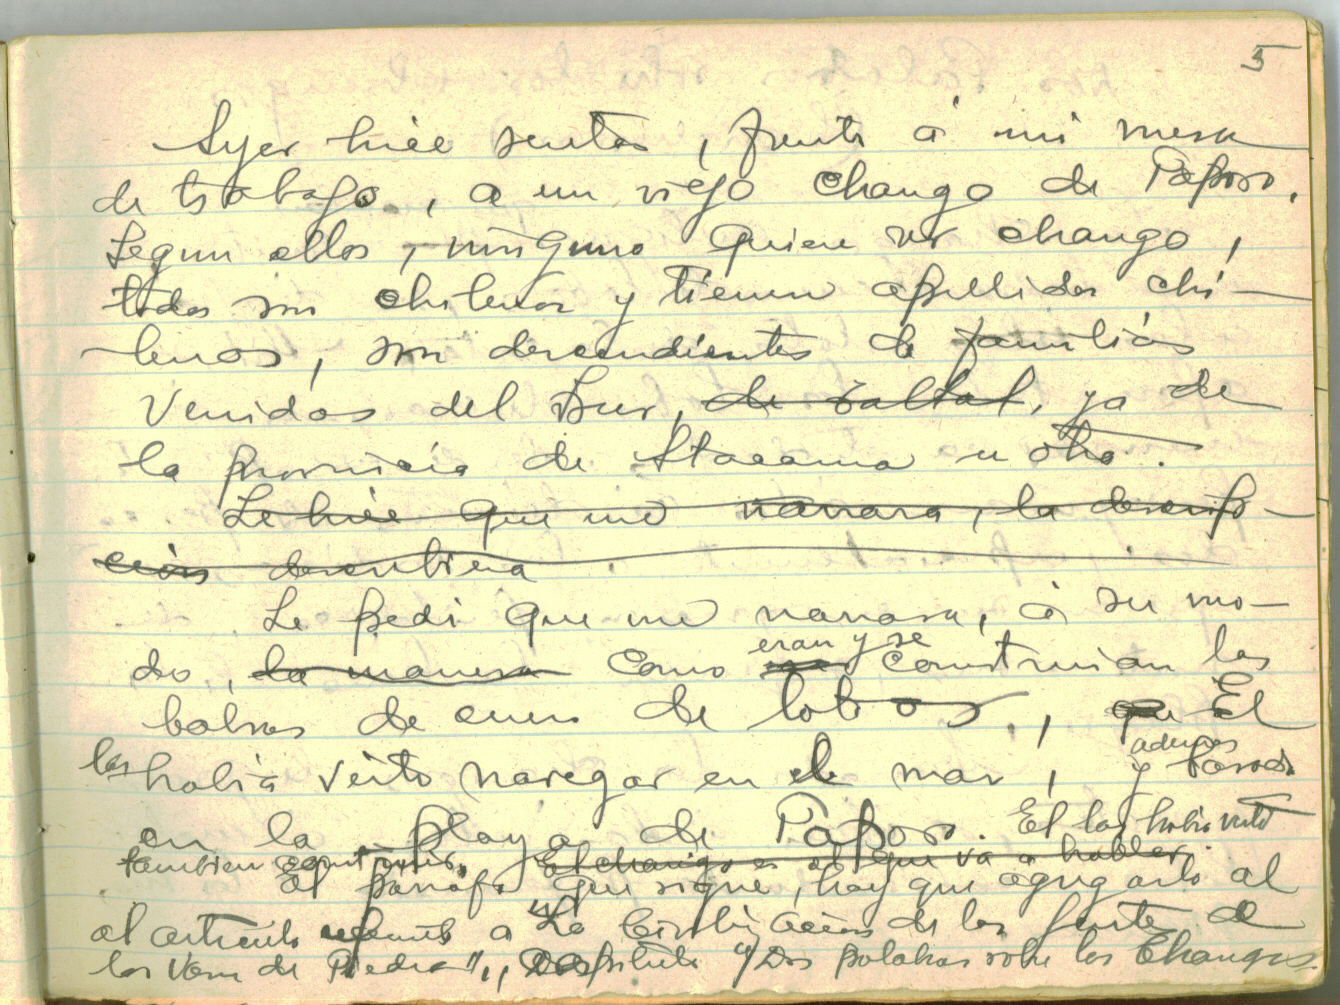 5
Ayer hice sentar, frente á mi mesa
de trabajo, a un viejo chango de Paposo.
Segun ellos, ninguno quiere ser chango,
todos son chilenos y tienen apellidos chi-
lenos, son descendientes de familias
venidas del Sur, de Taltal, ya de
la provincia de Atacama u otra.
Le hice que me narrara, la descrip-
ción describiera
Le pedi que me narrara, á su mo-
do, la manera como eran y se construian las
balsas de cuero de lobos, que El
las habia visto navegar en el mar, y ademas
en la playa de Paposo. El las habia visto
tambien construir. El chango es el que va a hablar.
El párrafo que sigue, hay que agregarlo al
al articulo referente a "La Civilizacion de la
los Vasos de Piedra", "Dos palabras sobre los Changos.